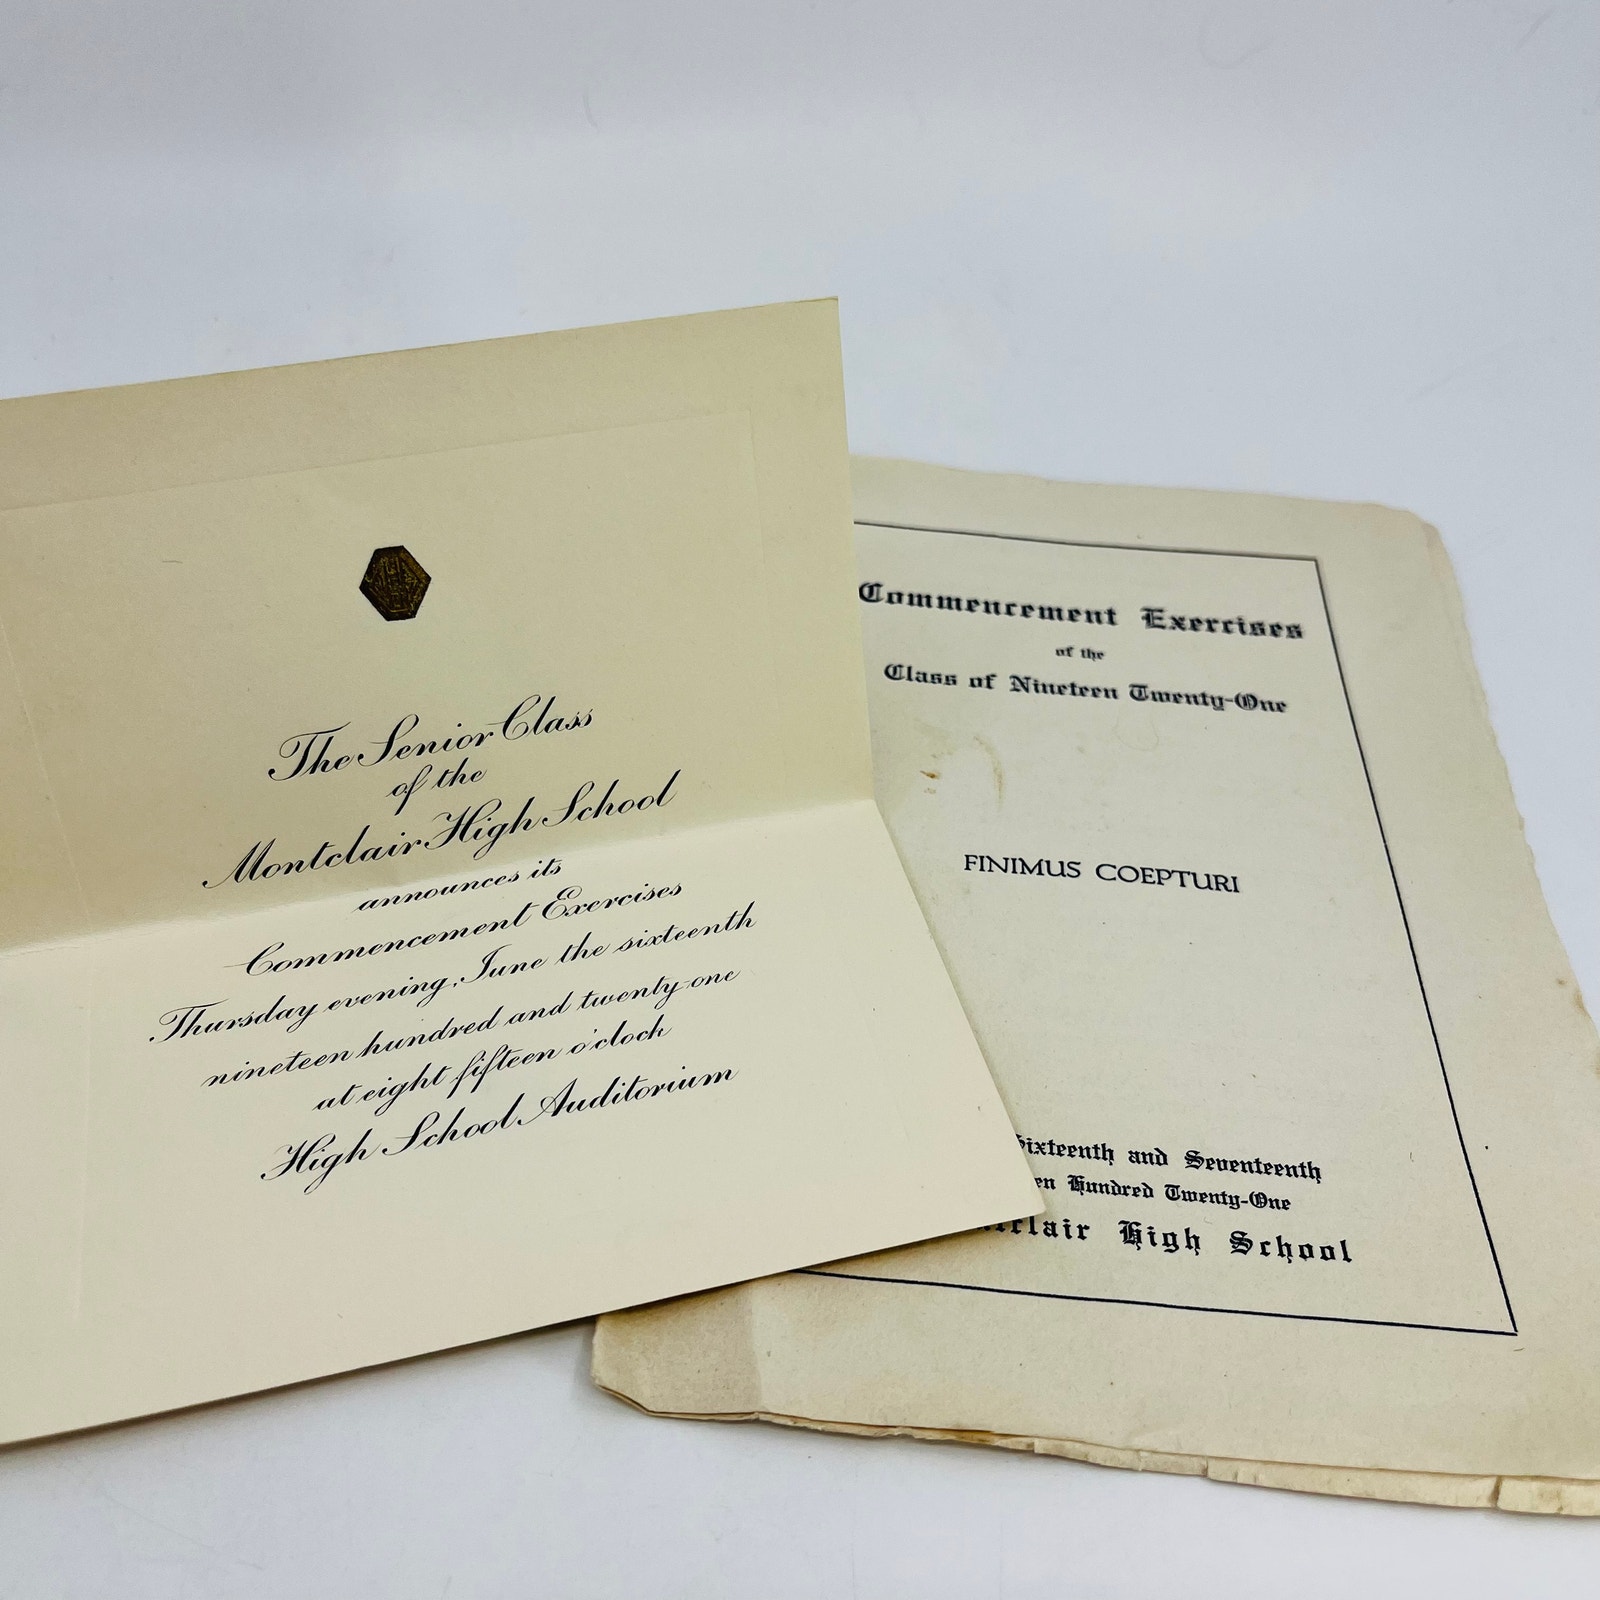 The Senior Class
of the
Montclair High School
announces its
Commencement Exercises
Thursday evening, June the sixteenth
nineteen hundred and twenty-one
at eight fifteen o'clock
High School Auditorium
Commencement Exercises
of the
Class of Nineteen Twenty-One
FINIMUS COEPTURI
Sixteenth and Seventeenth
Hundred Twenty-One
High School